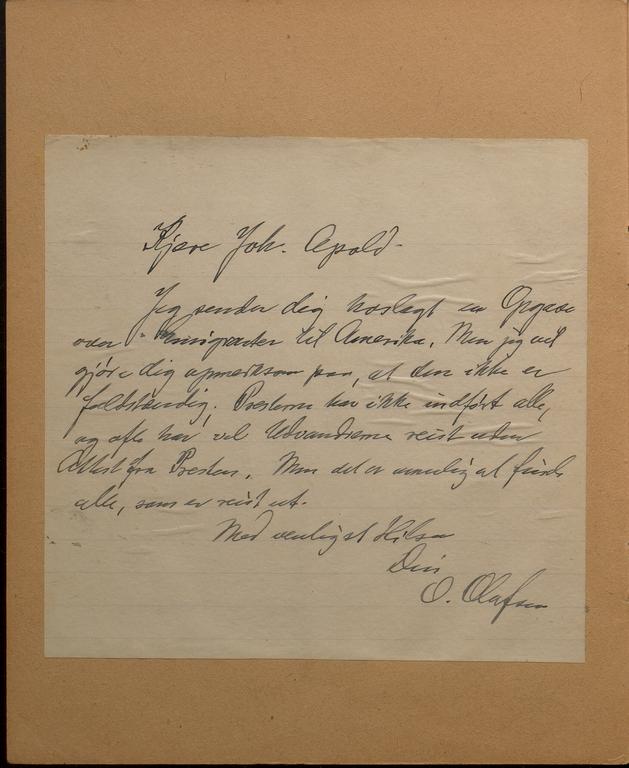 Kjære Joh. Apold.
Jeg sender dig hoslagt en Opgave
over Emigranter til Amerika. Men jeg vil
gjøre dig opmerksom paa, at den ikke er
fuldstændig. Presterne har ikke indført alle,
og ofte har vel Udvandrerne reist uden
Attest fra Presten. Men det er umulig at finde
alle, som er reist ut.
Med venligst Hilsen
Din
O. Olafsen